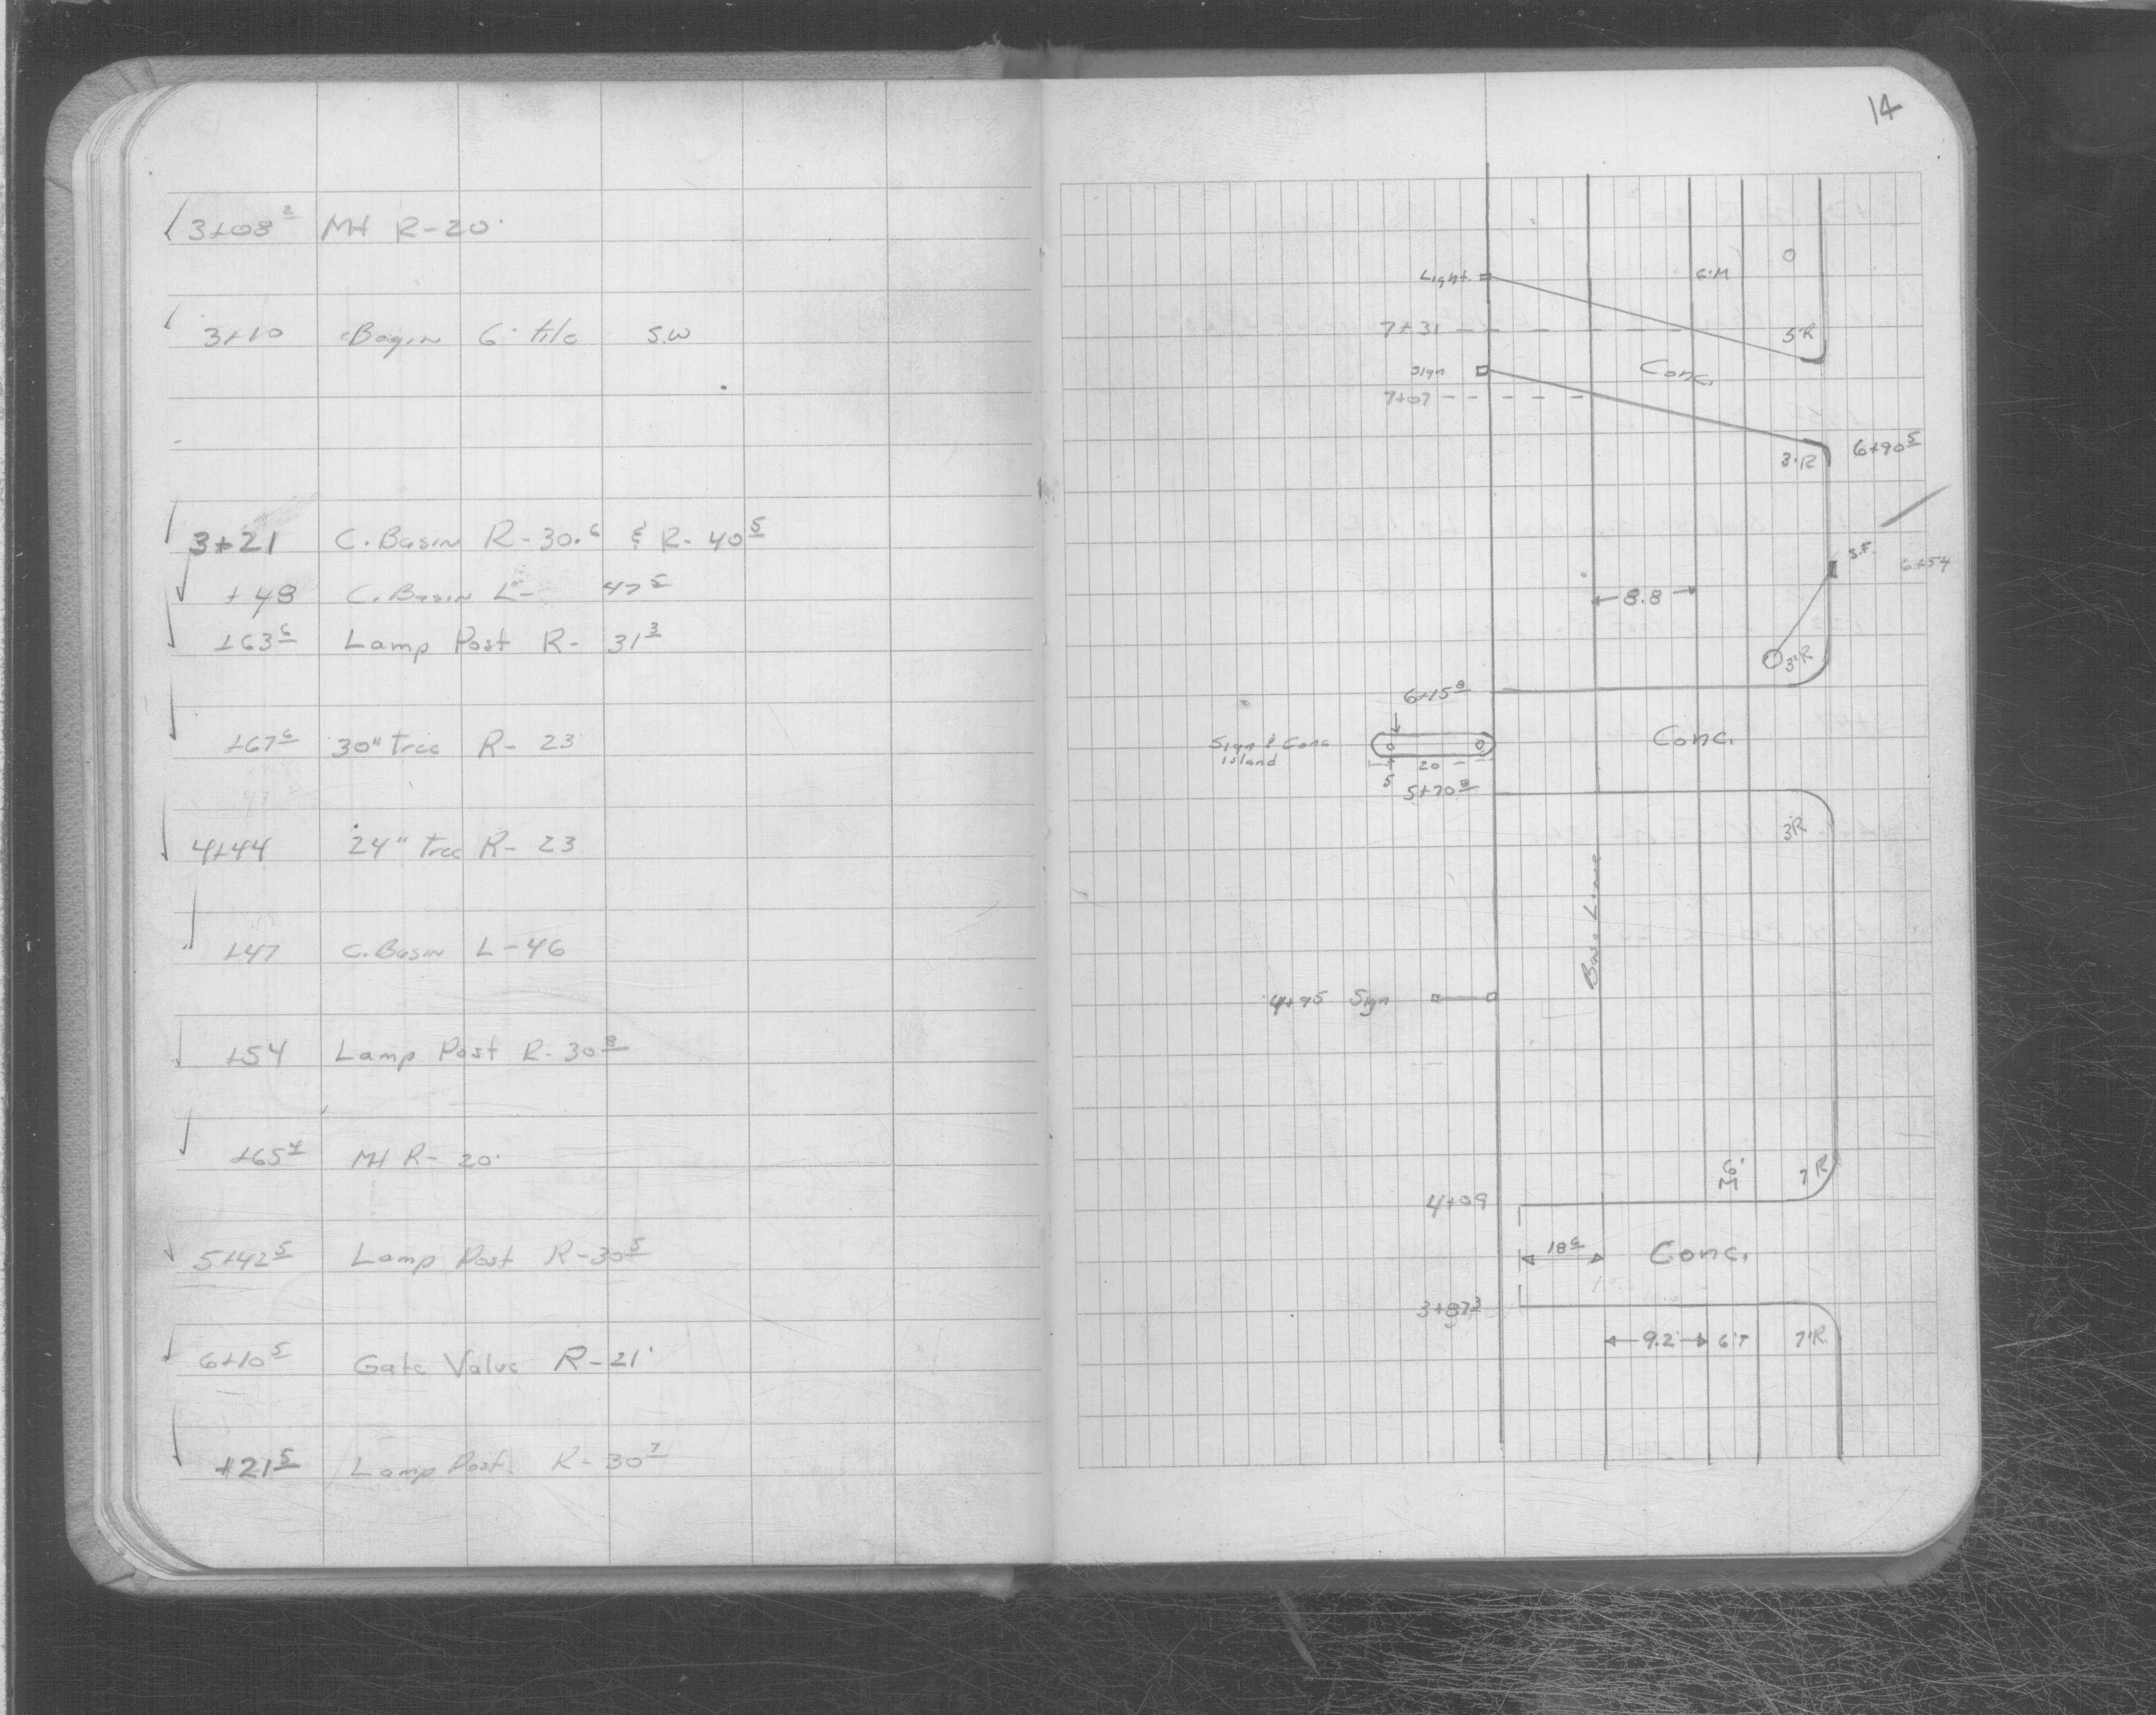 3+08² MH R-20'
3+10 Begin 6' tile S.W
3+21 C. Basin R-30.6 & R-40⁵
+48 C. Basin L- 47⁵
+63⁶ Lamp Post R- 31³
+67⁶ 30" Tree R- 23
4+44 24" Tree R- 23
+47 C. Basin L-46
+54 Lamp Post R-30⁸
+65⁴ MH R- 20'
5+42⁵ Lamp Post R-30⁵
6+10⁵ Gate Valve R-21'
+21⁵ Lamp Post R-30⁷
14
Light
6'M
7+31
5'R
Sign
Conc.
7+07
3'R
6+90⁵
S.F.
6+54
8.8
3'R
6+15⁸
Sign & Conc
Island
Conc.
20
5
5+70⁸
3'R
Base Line
4+95 Sign
6'
M
7'R
4+09
18⁶
Conc.
3+87³
9.2
6'T
7'R